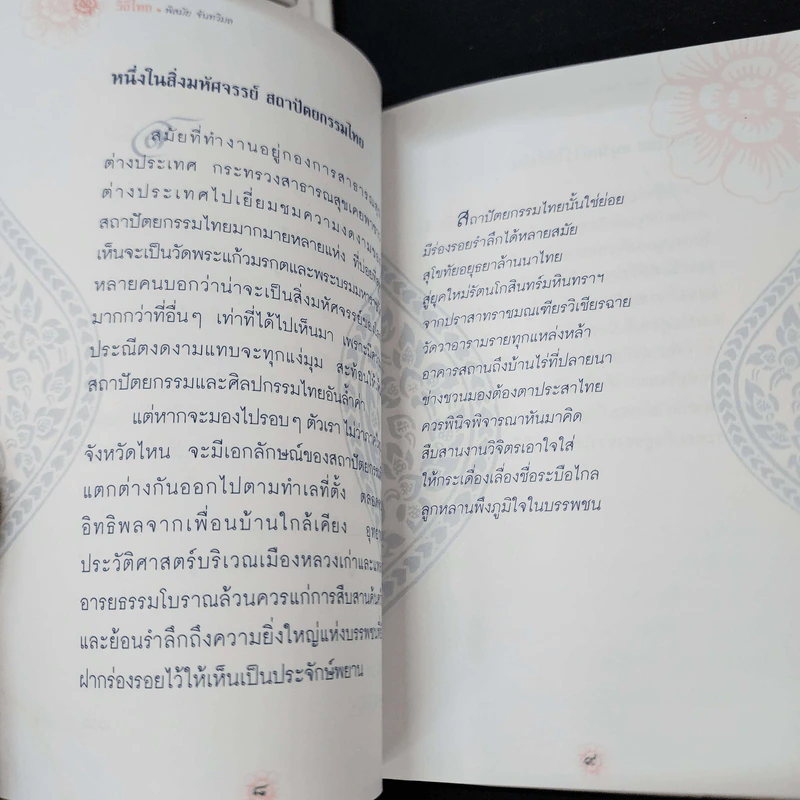 วิถีไทย • พิสมัย จันทวิมล
หนึ่งในสิ่งมหัศจรรย์ สถาปัตยกรรมไทย
สมัยที่ทำงานอยู่กองการสาธารณสุข
ต่างประเทศ กระทรวงสาธารณสุขเคยพา
ต่างประเทศไปเยี่ยมชมความงดงามของ
สถาปัตยกรรมไทยมากมายหลายแห่ง ที่บ่อย
เห็นจะเป็นวัดพระแก้วมรกตและพระบรมมหาราชวัง
หลายคนบอกว่าน่าจะเป็นสิ่งมหัศจรรย์ของโลก
มากกว่าที่อื่นๆ เท่าที่ได้ไปเห็นมา เพราะมีความ
ประณีตงดงามแทบจะทุกแง่มุม สะท้อนให้เห็น
สถาปัตยกรรมและศิลปกรรมไทยอันล้ำค่า
แต่หากจะมองไปรอบๆ ตัวเรา ไม่ว่าภาคไหน
จังหวัดไหน จะมีเอกลักษณ์ของสถาปัตยกรรม
แตกต่างกันออกไปตามทำเลที่ตั้ง ตลอดจน
อิทธิพลจากเพื่อนบ้านใกล้เคียง อุทยาน
ประวัติศาสตร์บริเวณเมืองหลวงเก่าและแหล่ง
อารยธรรมโบราณล้วนควรแก่การสืบสานค้นคว้า
และย้อนรำลึกถึงความยิ่งใหญ่แห่งบรรพชนที่
ฝากร่องรอยไว้ให้เห็นเป็นประจักษ์พยาน
๘
สถาปัตยกรรมไทยนั้นใช่ย่อย
มีร่องรอยรำลึกได้หลายสมัย
สุโขทัยอยุธยาล้านนาไทย
สู่ยุคใหม่รัตนโกสินทร์มหินทราฯ
จากปราสาทราชมณเฑียรวิเชียรฉาย
วัดวาอารามรายทุกแหล่งหล้า
อาคารสถานถึงบ้านไร่ที่ปลายนา
ช่างชวนมองต้องตาประสาไทย
ควรพินิจพิจารณาหันมาคิด
สืบสานงานวิจิตรเอาใจใส่
ให้กระเดื่องเลื่องชื่อระบือไกล
ลูกหลานพึงภูมิใจในบรรพชน
๙